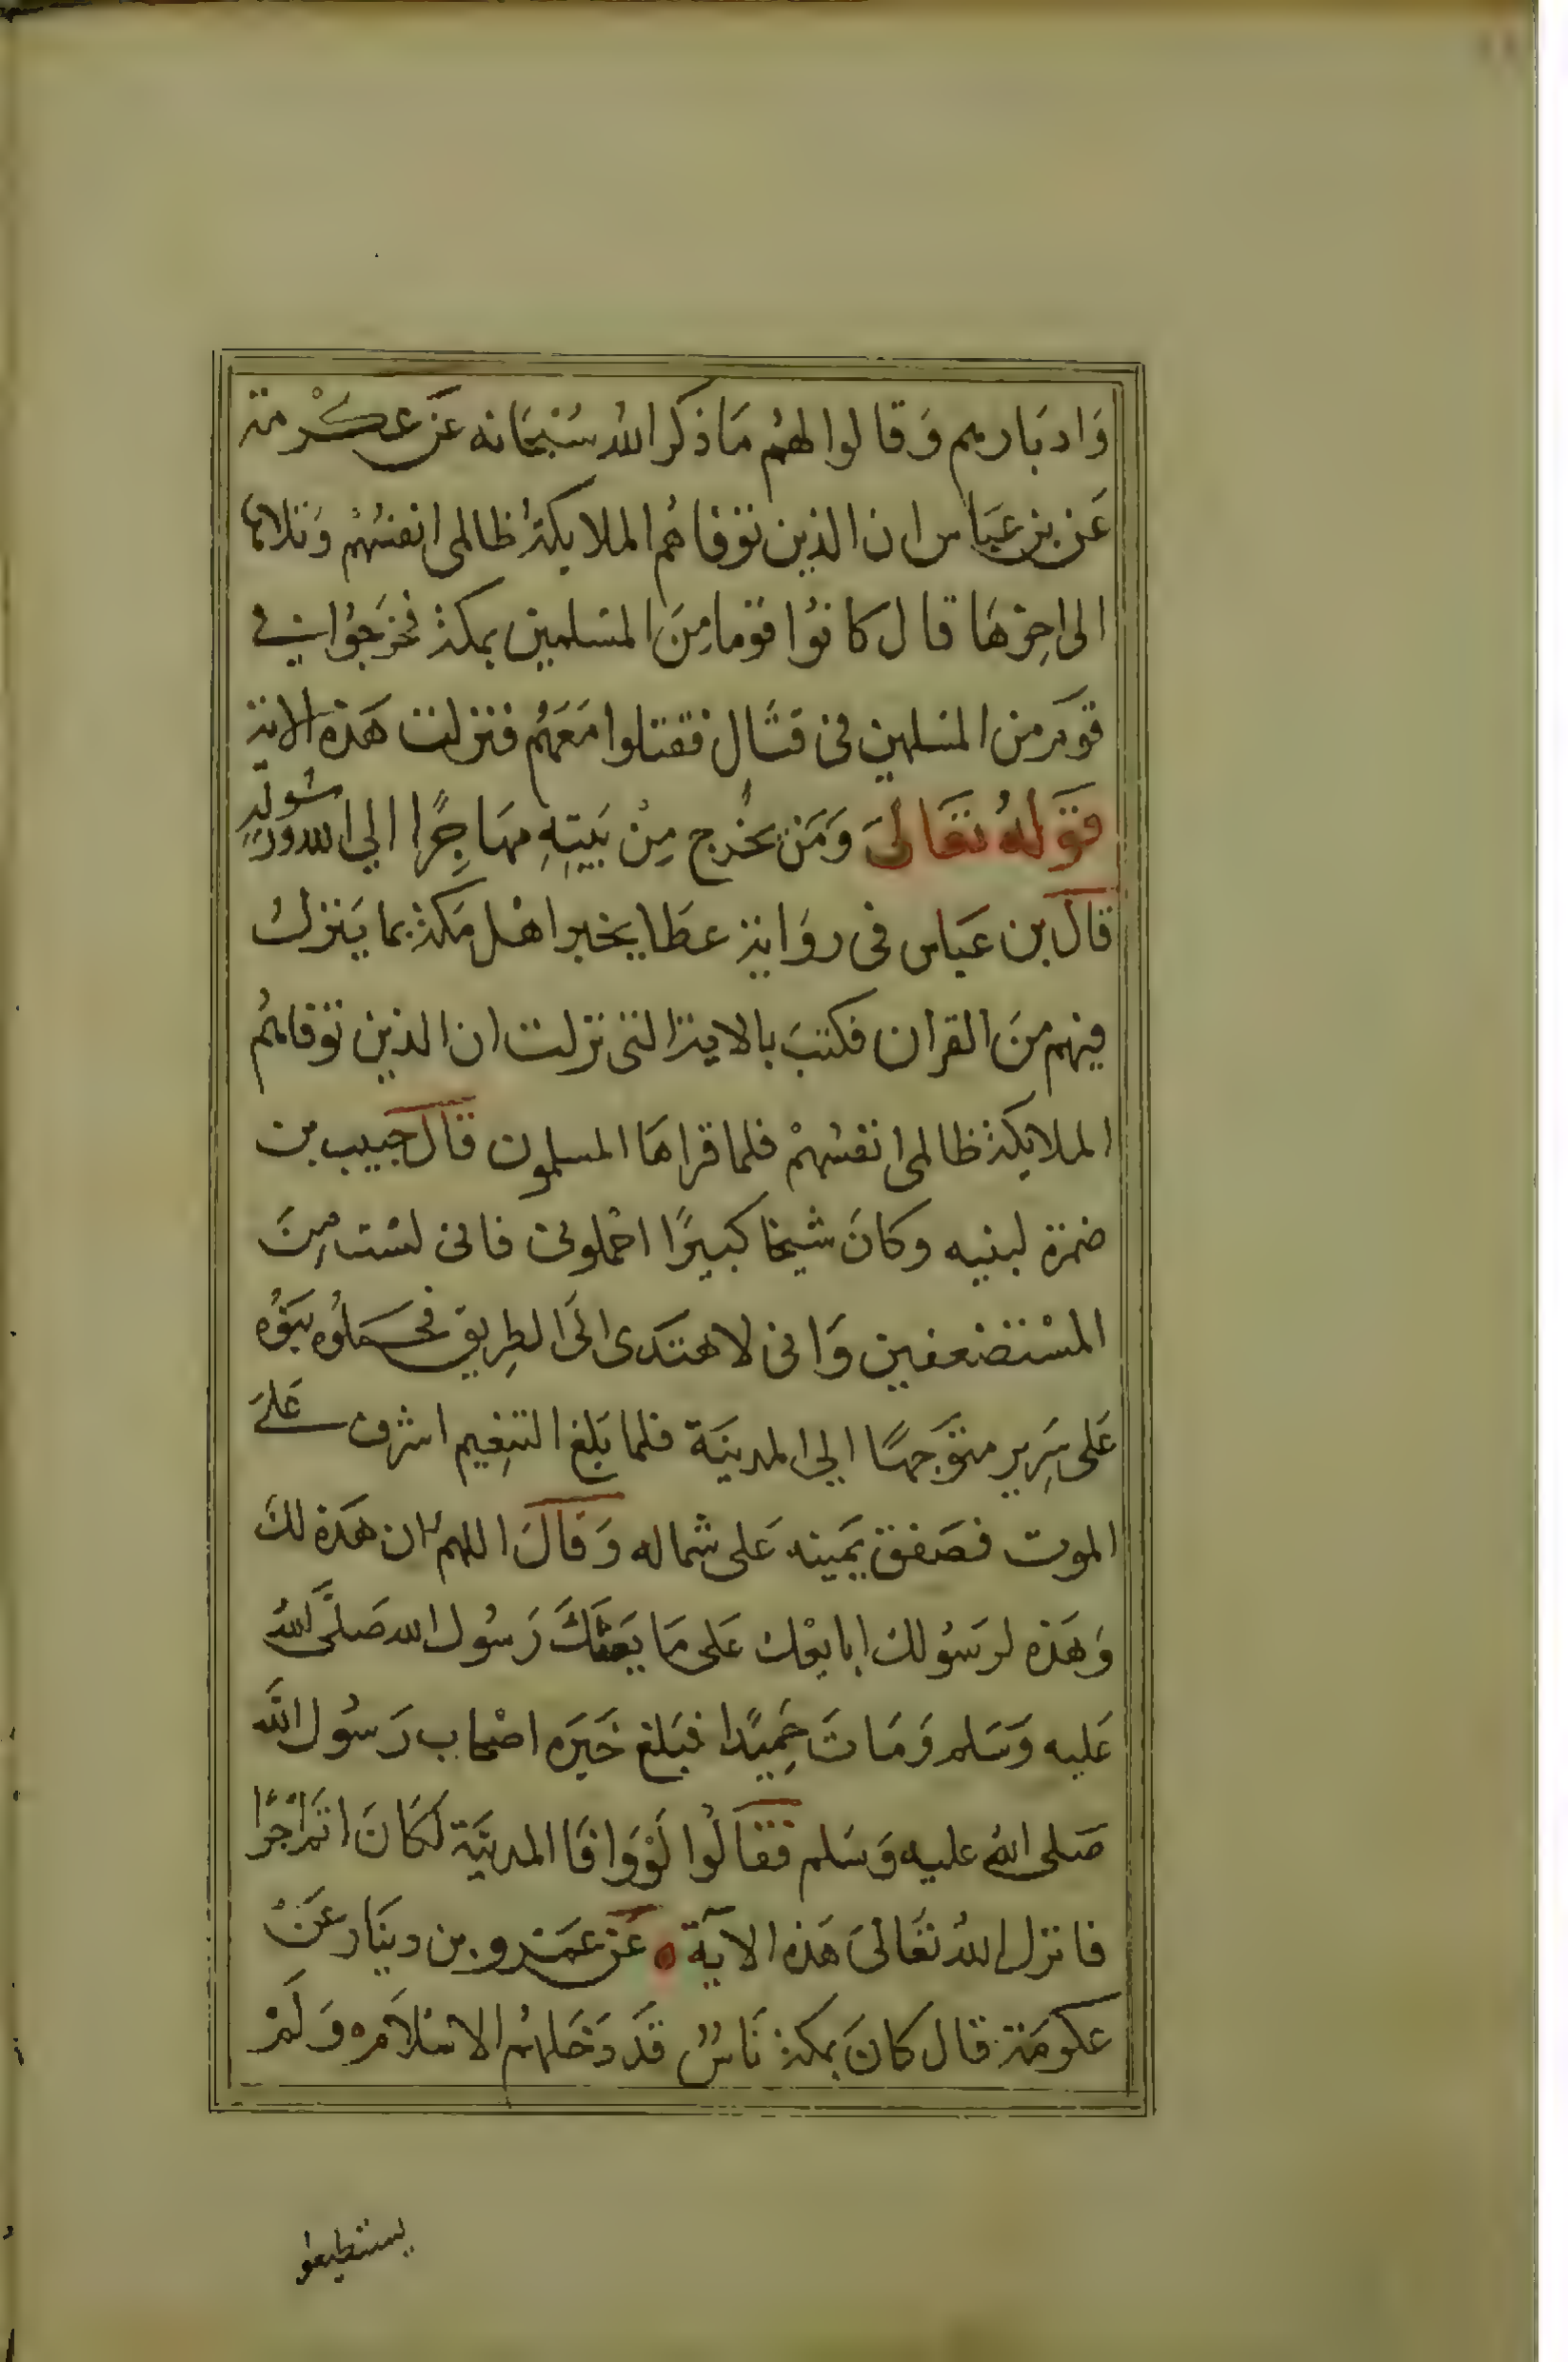 وَادبَارهم وَقالوا لهُم مَا ذكر اللهُ سُبْحَانه عَن عِكْرمة
عَن بن عَبَاس ان الذين توَفاهُم الملايكةُ ظالمي انفسُهُمْ وَتلاها
الى اخِرهَا قال كانوُا قوَما مِنَ المسَلمين بمكة فخرَجوُا في
قوَم من المسَلمين في قتَال فقتلوا مَعَهُم فنزلت هَذه الاية
قَوَلهُ تعَالىَ وَمَن يخُرج مِنْ بَيتِهِ مهَاجِرًا الي الله وَرسُولهِ
قال بن عَباس في روَاية عطَا يخبر اهْل مَكة بما يَنزلُ
فيهم مِنَ القران فكتبَ بالاية التى نزلت ان الذين توَفاهُم
الملايكة ظالمي انفسُهمْ فلما قراهَا المسلمون قال حَبيب بن
ضمرة لبنيه وكانَ شيخا كبيرًا احْملوني فاني لسْت مِنَ
المسْتضعفين وَاني لا هتَدى الىَ الطِريق فحَملوُه بَنوُه
عَلى سَرِير متوَجهًا الي المدينَة فلما بَلغ التنِعيم اشرف عَلىَ
الموت فصَفق يمَينه عَلى شماله وَقالَ اللهم ان هَذه لكَ
وَهَذه لرسَوُلك ابايعْك عَلى مَا يَعَتكَ رَسوُل الله صَلىَ اللهُ
عَليه وَسَلم وَمَاتَ حَمِيدًا فبَلغ خَبَره اصْحاب رَسوُل اللَّه
صَلى اللهُ عليه وَسَلم فقَالوُا لوْ وَافَا المدينَة لكَانَ اتمَ اجْرًا
فانزل اللهُ تعَالىَ هَذه الايَة ه عَن عَمرو بن دينَار عَنْ
عكرمَة قال كانَ بمكة نَاسٌ قَد دَخلهُم الاسْلاَم وَلَمْ
يستطيعوا